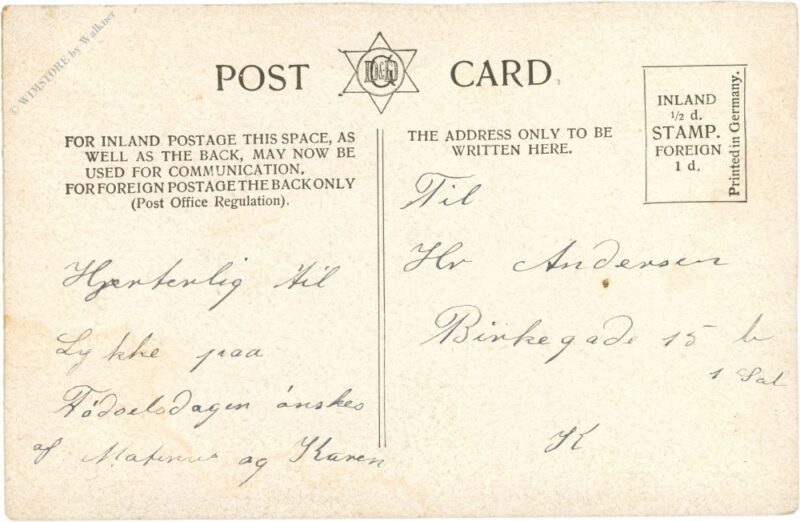 © WIMSTORE by Walkner
POST CARD
FOR INLAND POSTAGE THIS SPACE, AS
WELL AS THE BACK, MAY NOW BE
USED FOR COMMUNICATION.
FOR FOREIGN POSTAGE THE BACK ONLY
(Post Office Regulation).
Hjerterlig til
Lykke paa
Födselsdagen önskes
af og Karen
THE ADDRESS ONLY TO BE
WRITTEN HERE.
INLAND
1/2 d.
STAMP.
FOREIGN
1 d.
Printed in Germany.
Til
Hr Andersen
Birkegade 15
1 Sal
K